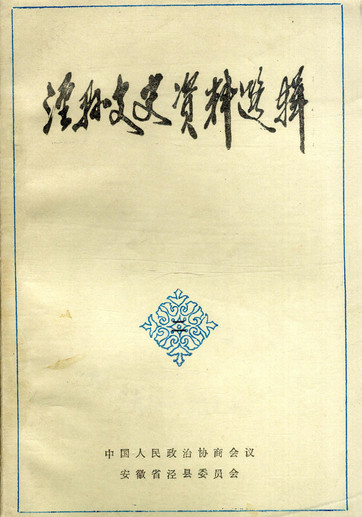 泾縣文史资料选辑
二
中国人民政治协商会议
安徽省泾县委员会